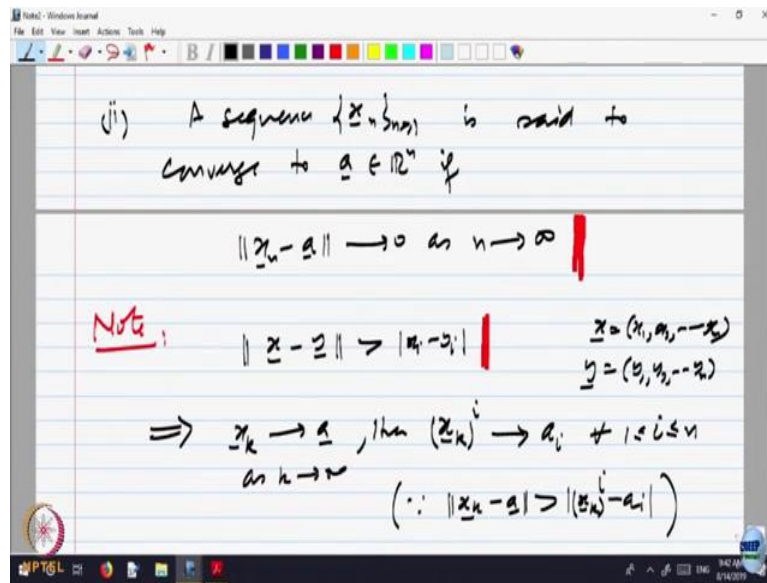 Note2 - Windows Journal
File Edit View Insert Actions Tools Help
B I
(ii) A sequence {x̲ₙ}ₙ≥₁ is said to
converge to a̲ ∈ ℝⁿ if
||x̲ₙ - a̲|| → 0 as n → ∞
Note: ||x̲ - y̲|| > |xᵢ - yᵢ|
x̲ = (x₁, x₂, --- xₙ)
y̲ = (y₁, y₂, -- yₙ)
⇒ x̲ₖ → a̲, then (x̲ₖ)ⁱ → aᵢ ∀ 1 ≤ i ≤ n
as k → ∞
(∵ ||x̲ₖ - a̲|| > |(x̲ₖ)ⁱ - aᵢ|)
NPTEL
ENG
9:42 AM
8/14/2019